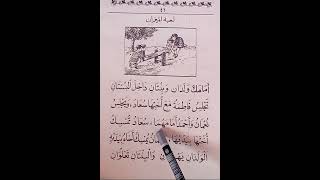 لعبة الميزان
أَمَامَكَ وَلَدَانِ وَبِنْتَانِ دَاخِلَ الْبُسْتَانِ
تَجْلِسُ فَاطِمَةُ مَعَ أُخْتِهَا سُعَادَ، وَيَجْلِسُ
نُعْمَانُ وَأَحْمَدُ أَمَامَهُمَا، سُعَادُ تُمْسِكُ
أُخْتَهَا بِيَدَيْهَا، يُمْسِكُ أَخَاهُ بِيَدَيْهِ
الْوَلَدَانِ وَالْبِنْتَانِ تَعْلُوَانِ